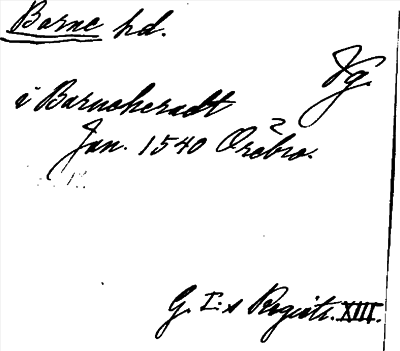 Barne hd.
Vg.
i Barnoheradt
Jan. 1540 Örebro.
G. I:s Registr. XIII.